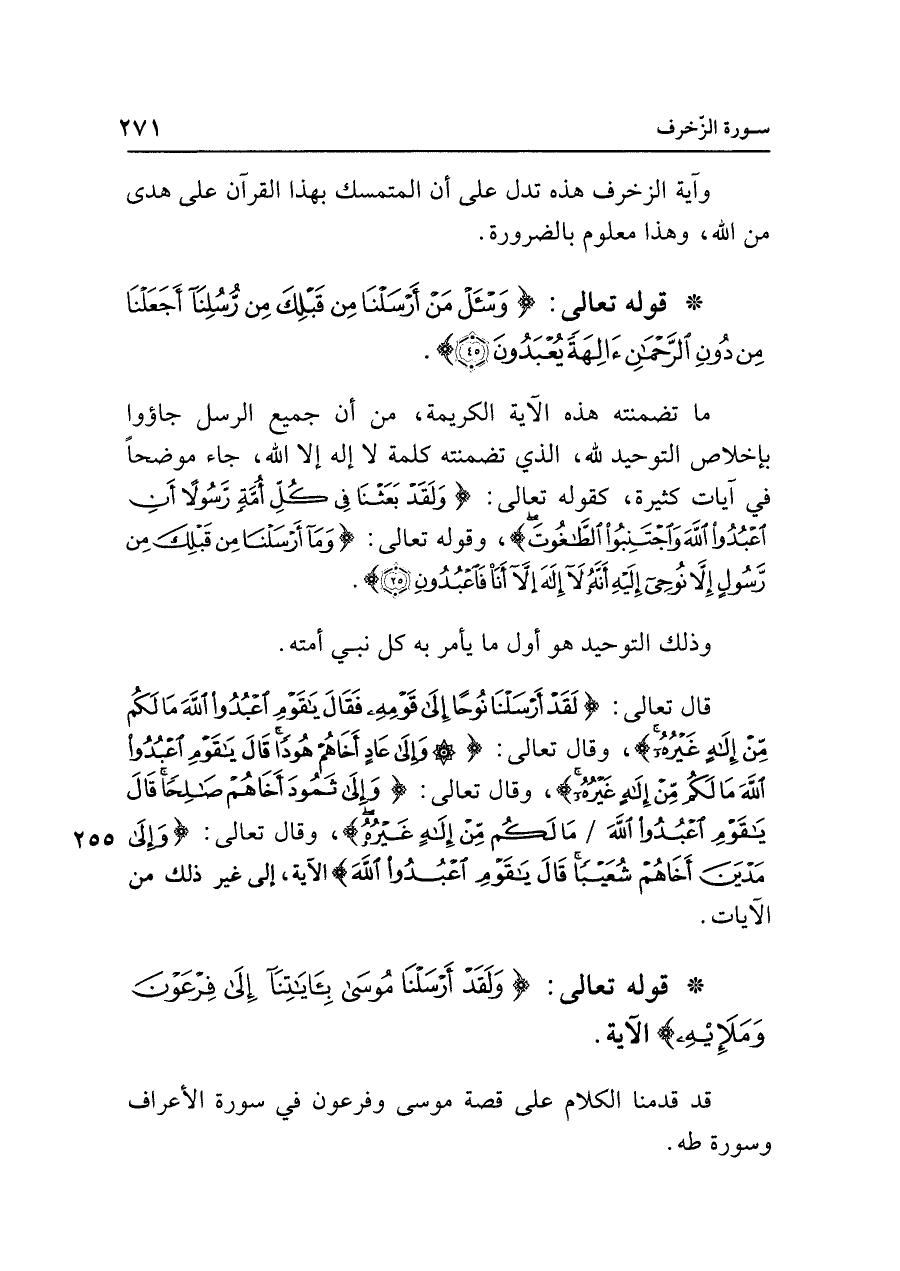 سورة الزّخرف ٢٧١
وآية الزخرف هذه تدل على أن المتمسك بهذا القرآن على هدى
من الله، وهذا معلوم بالضرورة.
* قوله تعالى: ﴿ وَسْـَٔلْ مَنْ أَرْسَلْنَا مِن قَبْلِكَ مِن رُّسُلِنَآ أَجَعَلْنَا
مِن دُونِ ٱلرَّحْمَٰنِ ءَالِهَةً يُعْبَدُونَ ٤٥ ﴾.
ما تضمنته هذه الآية الكريمة، من أن جميع الرسل جاؤوا
بإخلاص التوحيد لله، الذي تضمنته كلمة لا إله إلا الله، جاء موضحاً
في آيات كثيرة، كقوله تعالى: ﴿ وَلَقَدْ بَعَثْنَا فِى كُلِّ أُمَّةٍ رَّسُولًا أَنِ
ٱعْبُدُوا۟ ٱللَّهَ وَٱجْتَنِبُوا۟ ٱلطَّٰغُوتَۖ ﴾، وقوله تعالى: ﴿ وَمَآ أَرْسَلْنَا مِن قَبْلِكَ مِن
رَّسُولٍ إِلَّا نُوحِىٓ إِلَيْهِ أَنَّهُۥ لَآ إِلَٰهَ إِلَّآ أَنَا۠ فَٱعْبُدُونِ ٢٥ ﴾.
وذلك التوحيد هو أول ما يأمر به كل نبي أمته.
قال تعالى: ﴿ لَقَدْ أَرْسَلْنَا نُوحًا إِلَىٰ قَوْمِهِۦ فَقَالَ يَٰقَوْمِ ٱعْبُدُوا۟ ٱللَّهَ مَا لَكُم
مِّنْ إِلَٰهٍ غَيْرُهُۥٓ ﴾، وقال تعالى: ﴿ ۞ وَإِلَىٰ عَادٍ أَخَاهُمْ هُودًاۚ قَالَ يَٰقَوْمِ ٱعْبُدُوا۟
ٱللَّهَ مَا لَكُم مِّنْ إِلَٰهٍ غَيْرُهُۥٓۚ ﴾، وقال تعالى: ﴿ وَإِلَىٰ ثَمُودَ أَخَاهُمْ صَٰلِحًاۚ قَالَ
يَٰقَوْمِ ٱعْبُدُوا۟ ٱللَّهَ / مَا لَكُم مِّنْ إِلَٰهٍ غَيْرُهُۥۖ ﴾، وقال تعالى: ﴿ وَإِلَىٰ ٢٥٥
مَدْيَنَ أَخَاهُمْ شُعَيْبًاۚ قَالَ يَٰقَوْمِ ٱعْبُدُوا۟ ٱللَّهَ ﴾ الآية، إلى غير ذلك من
الآيات.
* قوله تعالى: ﴿ وَلَقَدْ أَرْسَلْنَا مُوسَىٰ بِـَٔايَٰتِنَآ إِلَىٰ فِرْعَوْنَ
وَمَلَإِي۟هِۦ ﴾ الآية.
قد قدمنا الكلام على قصة موسى وفرعون في سورة الأعراف
وسورة طه.